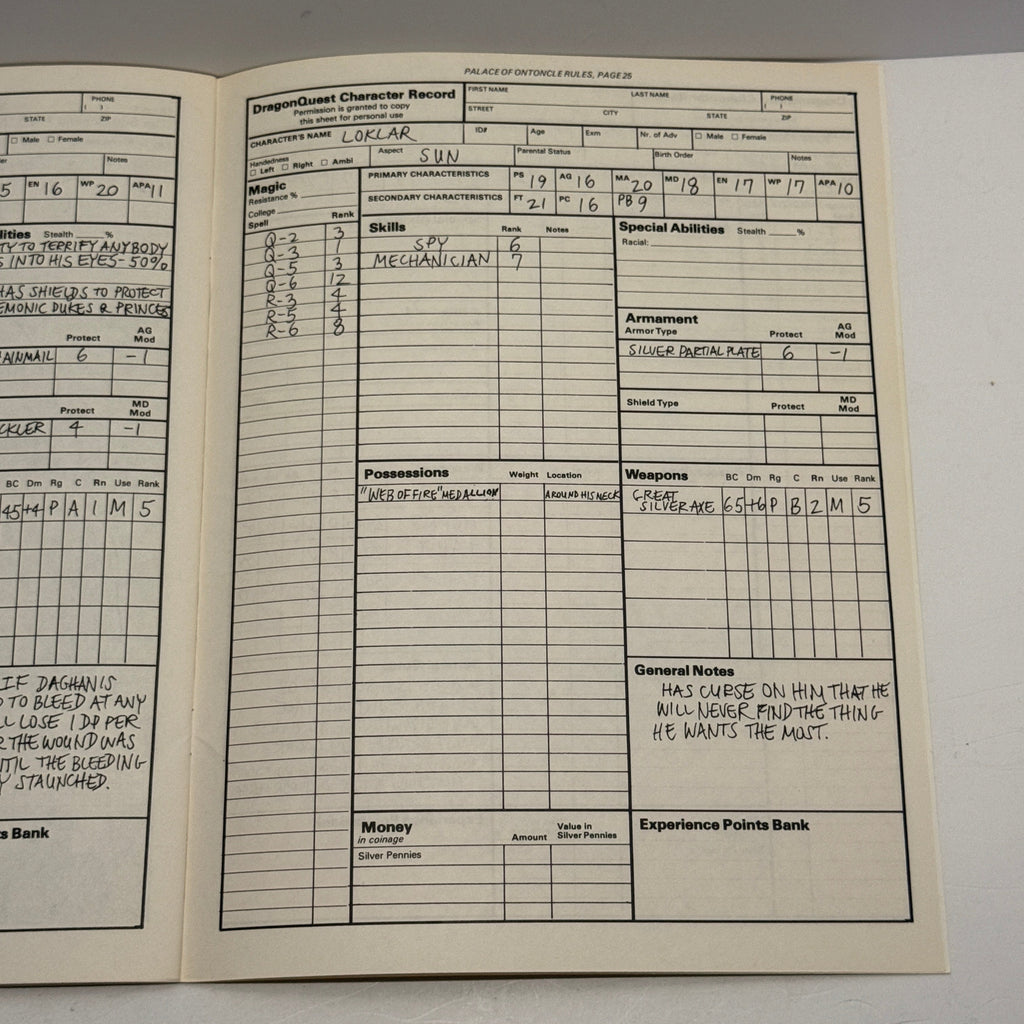 PHONE
( )
STATE ZIP
☐ Male ☐ Female
Notes
5 EN 16 WP 20 APA 11
Stealth ____ %
TY TO TERRIFY ANYBODY
S INTO HIS EYES-50%
HAS SHIELDS TO PROTECT
EMONIC DUKES & PRINCES
Protect AG Mod
AINMAIL 6 -1
Protect MD Mod
CKLER 4 -1
BC Dm Rg C Rn Use Rank
45 +4 P A 1 M 5
IF DAGHAN IS
D TO BLEED AT ANY
LL LOSE 1 DP PER
R THE WOUND WAS
UNTIL THE BLEEDING
Y STAUNCHED.
s Bank
PALACE OF ONTONCLE RULES, PAGE 25
DragonQuest Character Record
Permission is granted to copy
this sheet for personal use
FIRST NAME LAST NAME PHONE
( )
STREET CITY STATE ZIP
CHARACTER'S NAME LOKLAR ID# Age Exm Nr. of Adv ☐ Male ☐ Female
Handedness
☐ Left ☐ Right ☐ Ambi
Aspect SUN Parental Status Birth Order Notes
PRIMARY CHARACTERISTICS PS 19 AG 16 MA 20 MD 18 EN 17 WP 17 APA 10
SECONDARY CHARACTERISTICS FT 21 PC 16 PB 9
Magic
Resistance % ____
College ____
Spell Rank
Q-2 3
Q-3 1
Q-5 3
Q-6 12
R-3 4
R-5 4
R-6 8
Skills Rank Notes
SPY 6
MECHANICIAN 7
Special Abilities Stealth ____ %
Racial: ____
Armament
Armor Type Protect AG Mod
SILVER PARTIAL PLATE 6 -1
Shield Type Protect MD Mod
Possessions Weight Location
"WEB OF FIRE" MEDALLION AROUND HIS NECK
Weapons BC Dm Rg C Rn Use Rank
GREAT
SILVER AXE 65 +6 P B 2 M 5
General Notes
HAS CURSE ON HIM THAT HE
WILL NEVER FIND THE THING
HE WANTS THE MOST.
Money
in coinage
Amount Value in Silver Pennies
Silver Pennies
Experience Points Bank